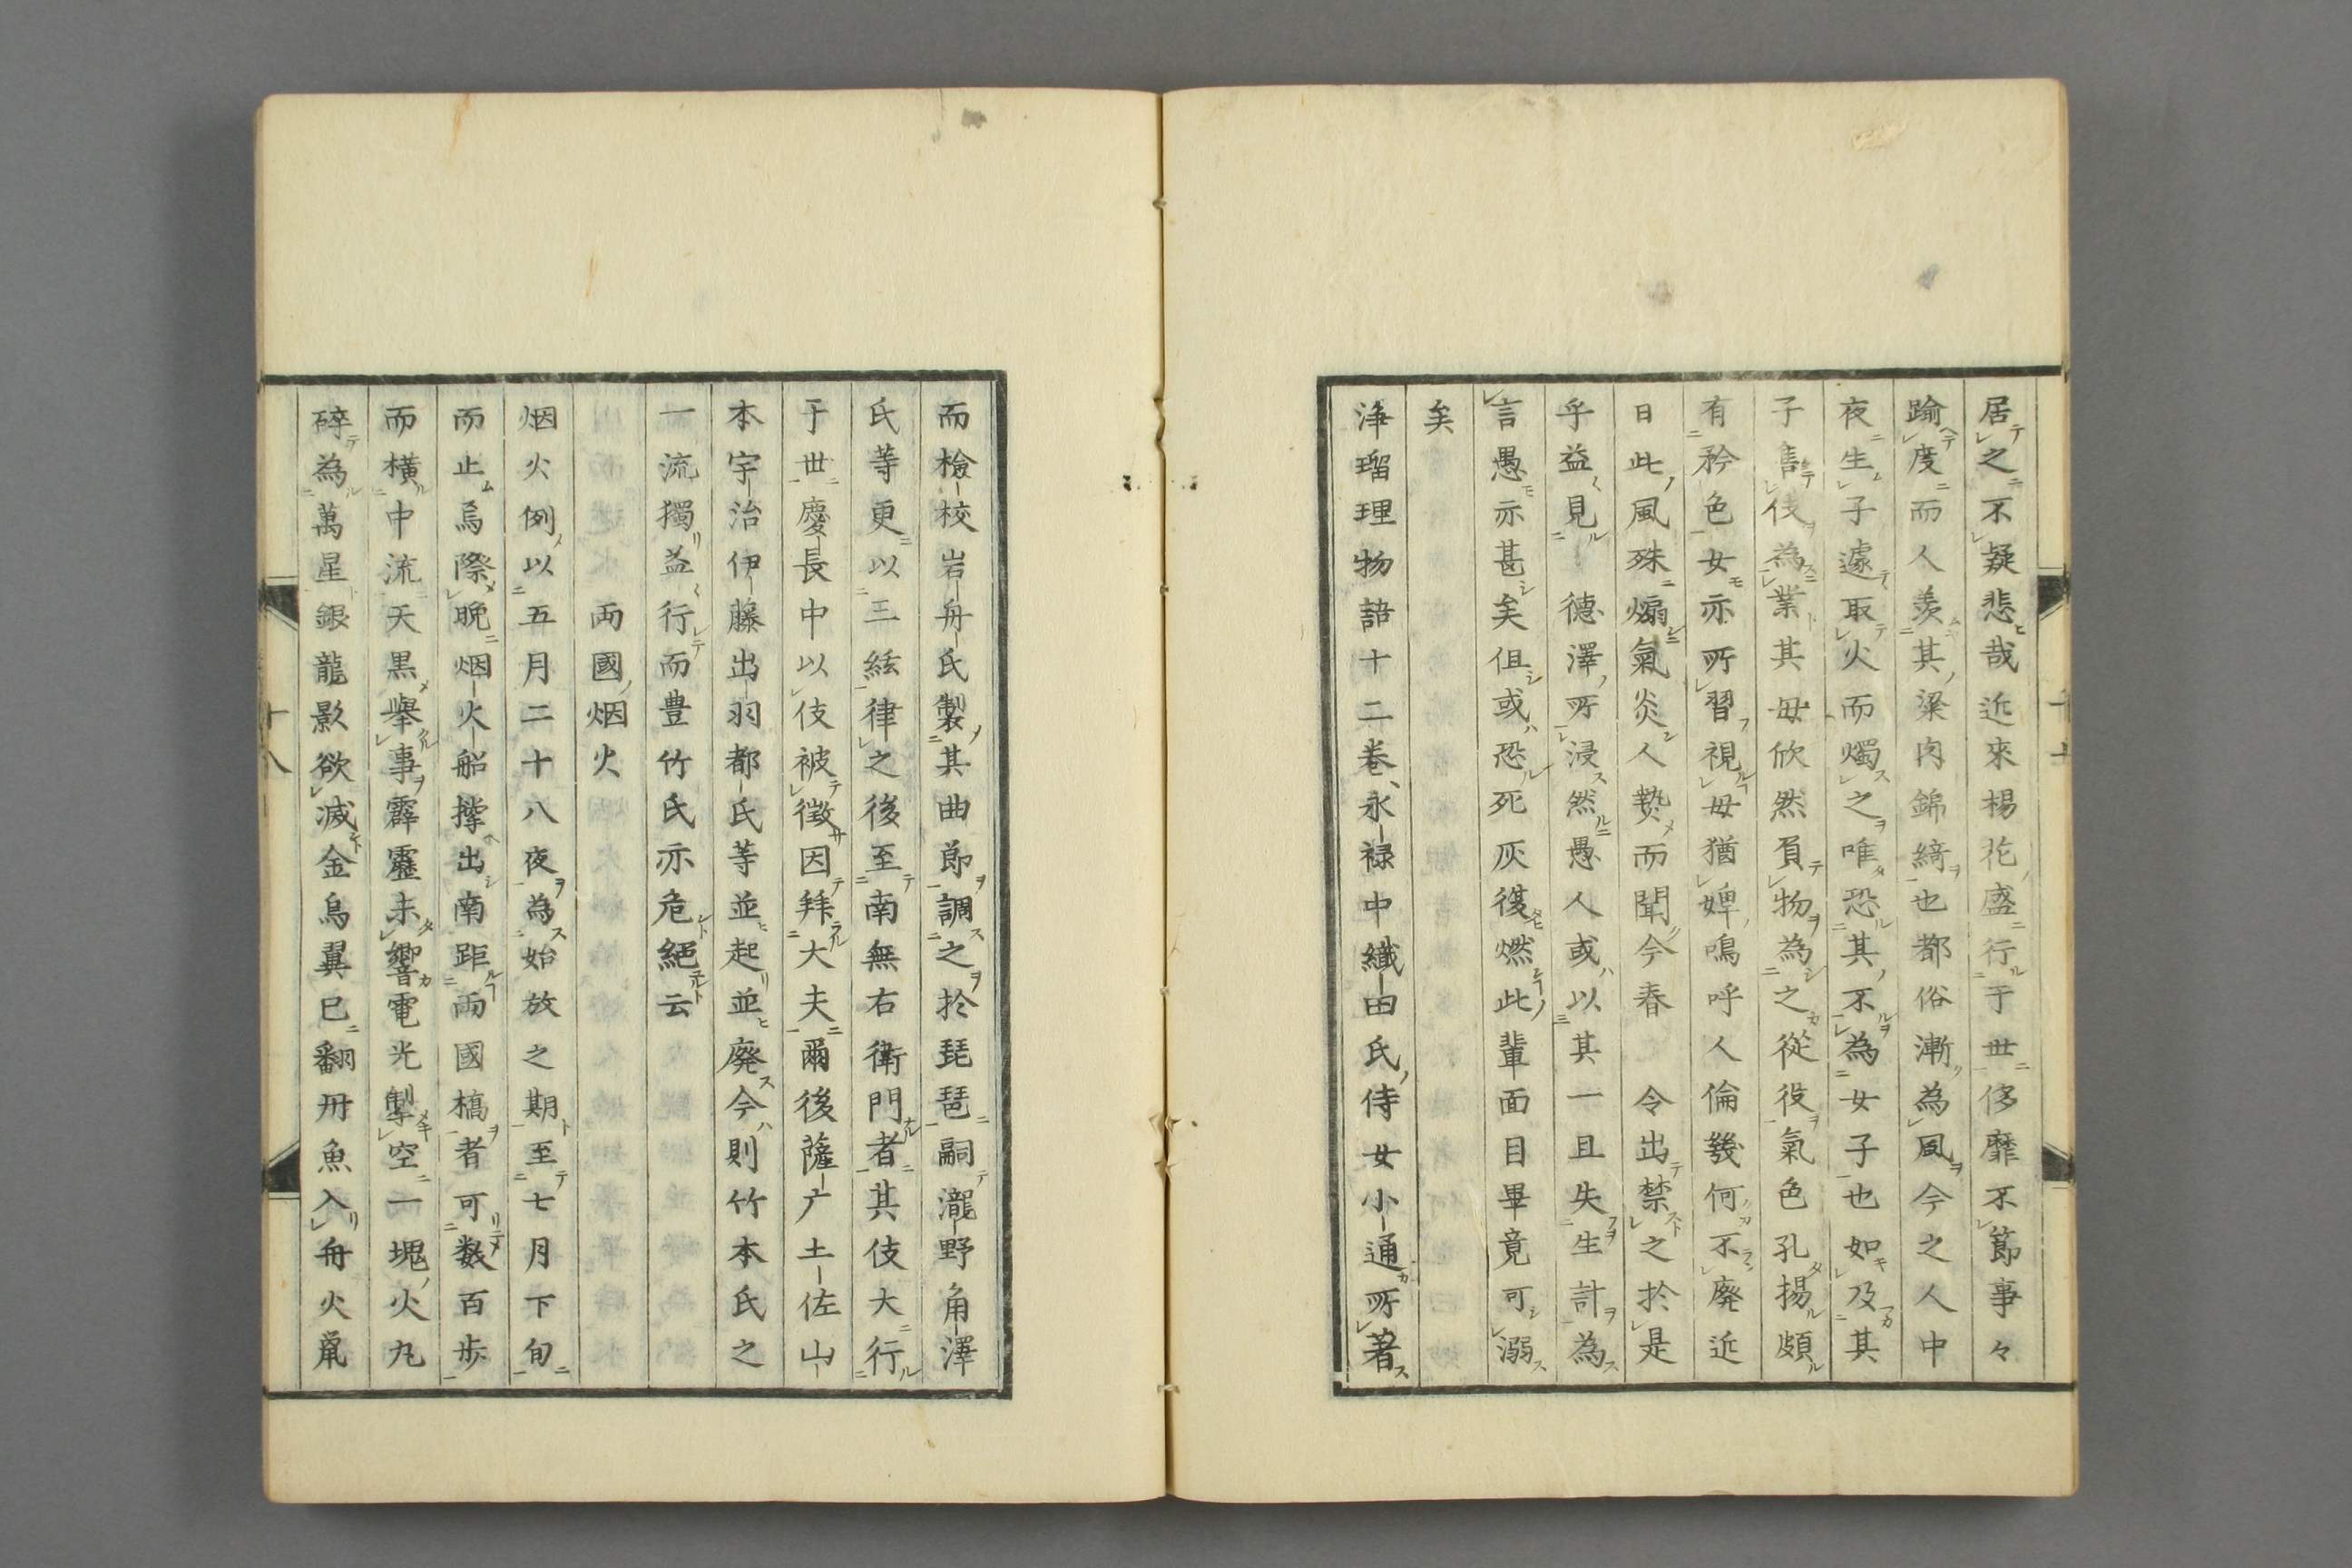 居之不疑悲哉近來楊花盛行于世侈靡不節事々
踰度而人羨其粱肉錦綺也都俗漸為風今之人中
夜生子遽取火而燭之唯恐其不為女子也如及其
子售伎為業其母欣然負物為之從役氣色孔揚頗
有矜色女亦所習視母猶婢嗚呼人倫幾何不廢近
日此風殊煽氣炎人贄而聞今春 令出禁之於是
乎益見 德澤所浸然愚人或以其一旦失生計為
言愚亦甚矣但或恐死灰復燃此輩面目畢竟可溺
矣
淨瑠理物語十二巻永祿中織田氏侍女小通所著
而檢校岩舟氏製其曲節調之於琵琶嗣瀧野角澤
氏等更以三絃律之後至南無右衛門者其伎大行
于世慶長中以伎被徵因拜大夫爾後薩广土佐山
本宇治伊藤出羽都氏等並起並廢今則竹本氏之
一流獨益行而豊竹氏亦危絕云
両國烟火
烟火例以五月二十八夜為始放之期至七月下旬
而止烏際晚烟火船撑出南距両國橋者可数百歩
而橫中流天黒舉事霹靂未響電光掣空一塊火丸
碎為萬星銀龍影欲滅金烏翼已翻丹魚入舟火鼠
十八